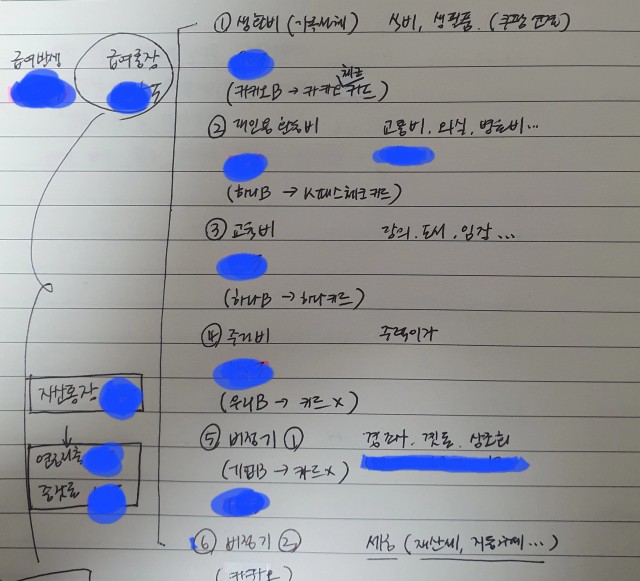 급여발생
급여통장
① 생활비 (가족전체) 식비, 생필품. (쿠팡 연결)
(카카오B → 카카오 체크 카드)
② 개인용 활동비 교통비. 외식. 병원비...
(하나B → K패스체크카드)
③ 교육비 강의. 도서. 임장...
(하나B → 하나카드)
④ 주거비 주택이자
(우리B → 카드 X)
자산통장
⑤ 비정기 ① 경조사. 상조회
(B → 카드 X)
연금저축
⑥ 비정기 ② 세금 (재산세, 자동차세...)
(카카오